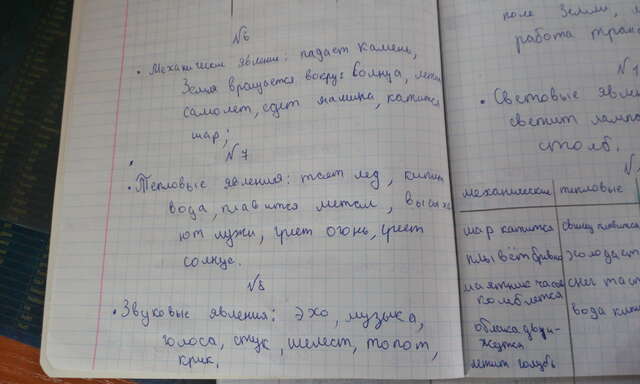 N6
• Механические явления: падает камень,
Земля вращается вокруг Солнца, летит
самолет, едет машина, катится
шар;
N7
• Тепловые явления: тает лед, кипит
вода, плавится металл, высыха
ют лужи, греет огонь, греет
солнце.
N8
• Звуковые явления: эхо, музыка,
голоса, стук, шелест, топот,
крик.
поле Земли,
работа
N
• Световые
светит
столб.
механические тепловые
шар катится свинец плавится
плывёт бревно холодает
маятник часов снег
колеблется вода
облака дви-
жутся
летит голубь